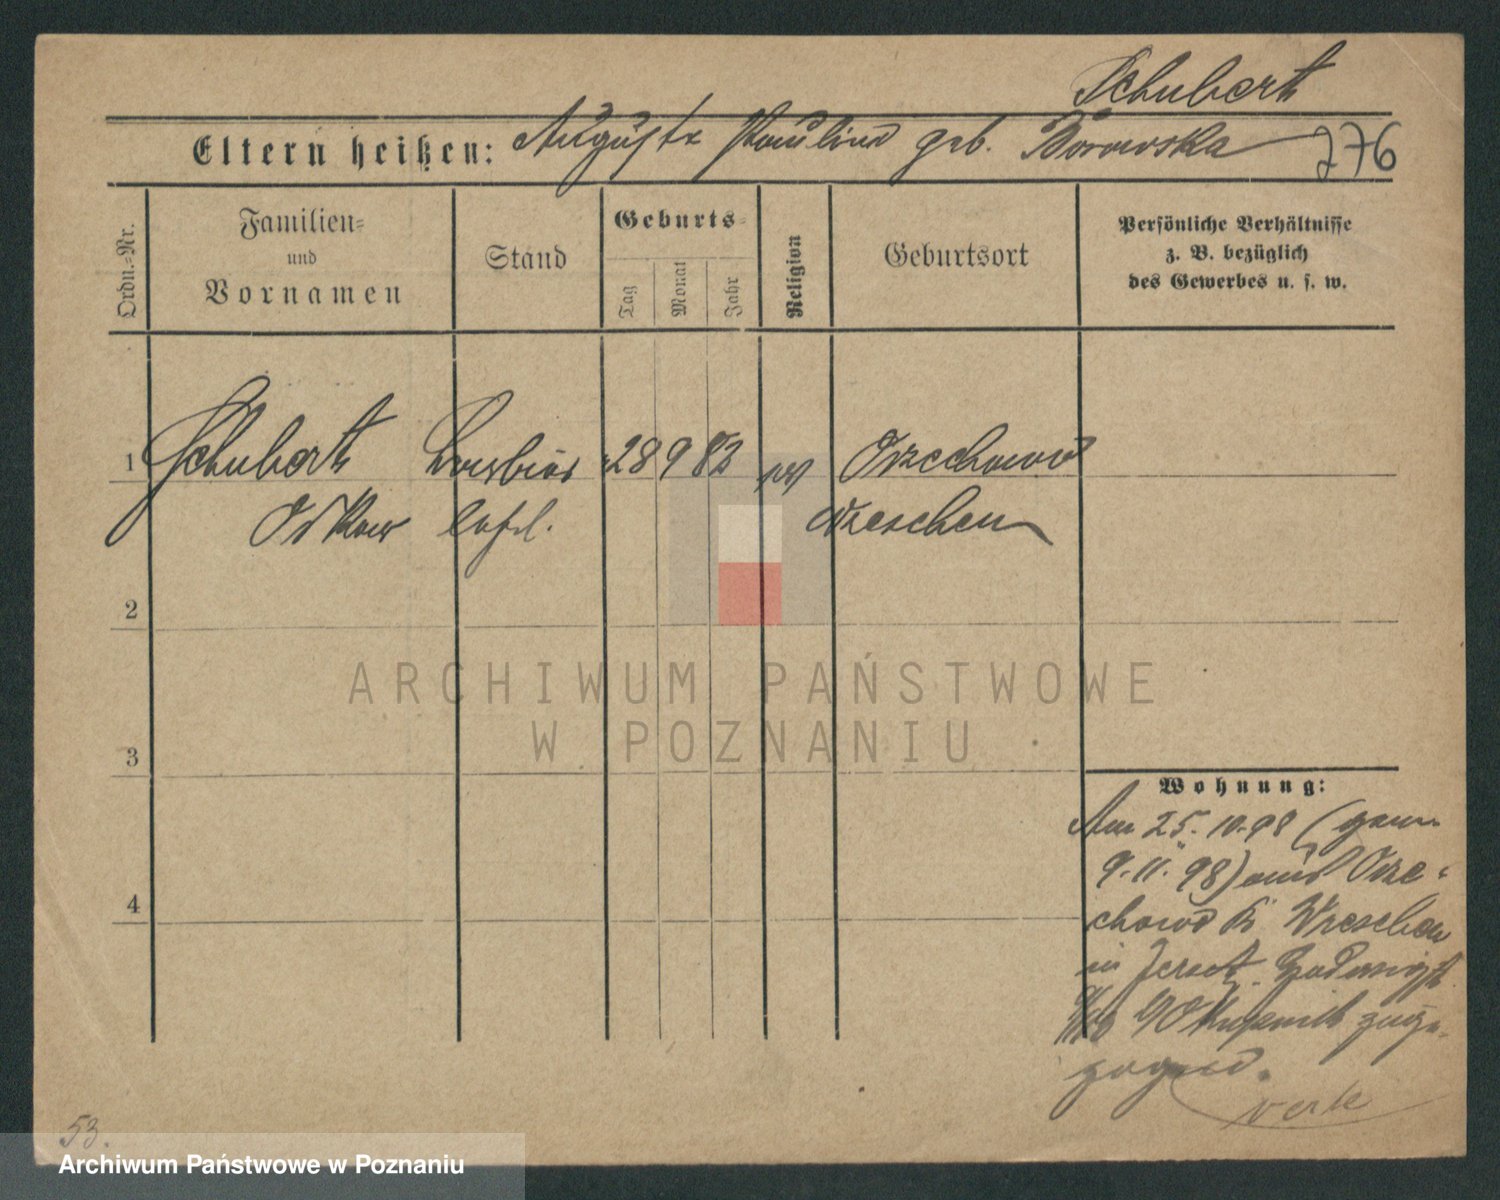 Schubert
Eltern heißen: August u Pauline geb. Borowska 276
Ordn.-Nr.
Familien-
und
Vornamen
Stand
Geburts-
Tag
Monat
Jahr
Religion
Geburtsort
Persönliche Verhältnisse
z. B. bezüglich
des Gewerbes u. s. w.
1 Schubert 28 9 82 ev Orzechowo
Oskar Wreschen
2
3
4
Wohnung:
Am 25. 10. 98 (gem.
9. 11. 98) aus Orze-
chowo Kr. Wreschen
in Jersitz
zuge-
zogen.
verte
53.
ARCHIWUM PAŃSTWOWE
W POZNANIU
Archiwum Państwowe w Poznaniu